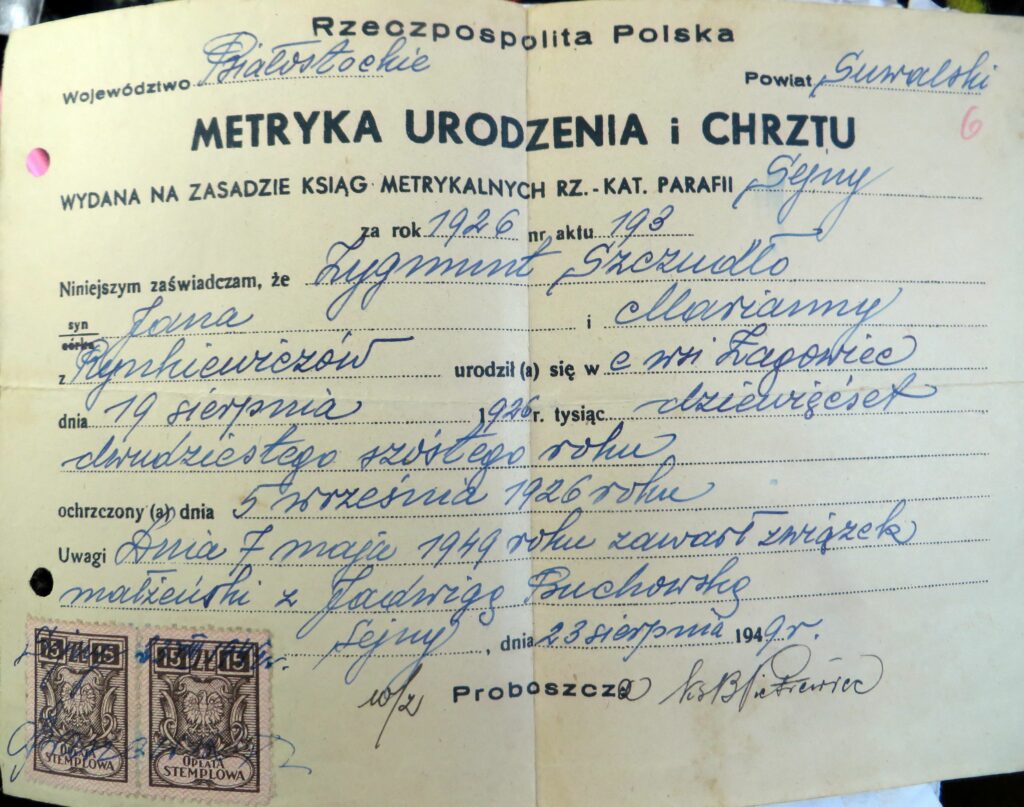 Rzeczpospolita Polska
Województwo Białostockie Powiat Suwalski
6
METRYKA URODZENIA i CHRZTU
WYDANA NA ZASADZIE KSIĄG METRYKALNYCH RZ.-KAT. PARAFII Sejny
za rok 1926 nr aktu 193
Niniejszym zaświadczam, że Zygmunt Szczudło
syn córka Jana i Marianny
z Rynkiewiczów urodził (a) się w e wsi Zagowiec
dnia 19 sierpnia 1926 r. tysiąc dziewięćset
dwudziestego szóstego roku
ochrzczony (a) dnia 5 września 1926 roku
Uwagi Dnia 7 maja 1949 roku zawarł związek
małżeński z Jadwigą Buchowską
Sejny, dnia 23 sierpnia 1949 r.
w/z Proboszcza ks B
15 ZŁ 15 15 ZŁ 15
OPŁATA STEMPLOWA OPŁATA STEMPLOWA